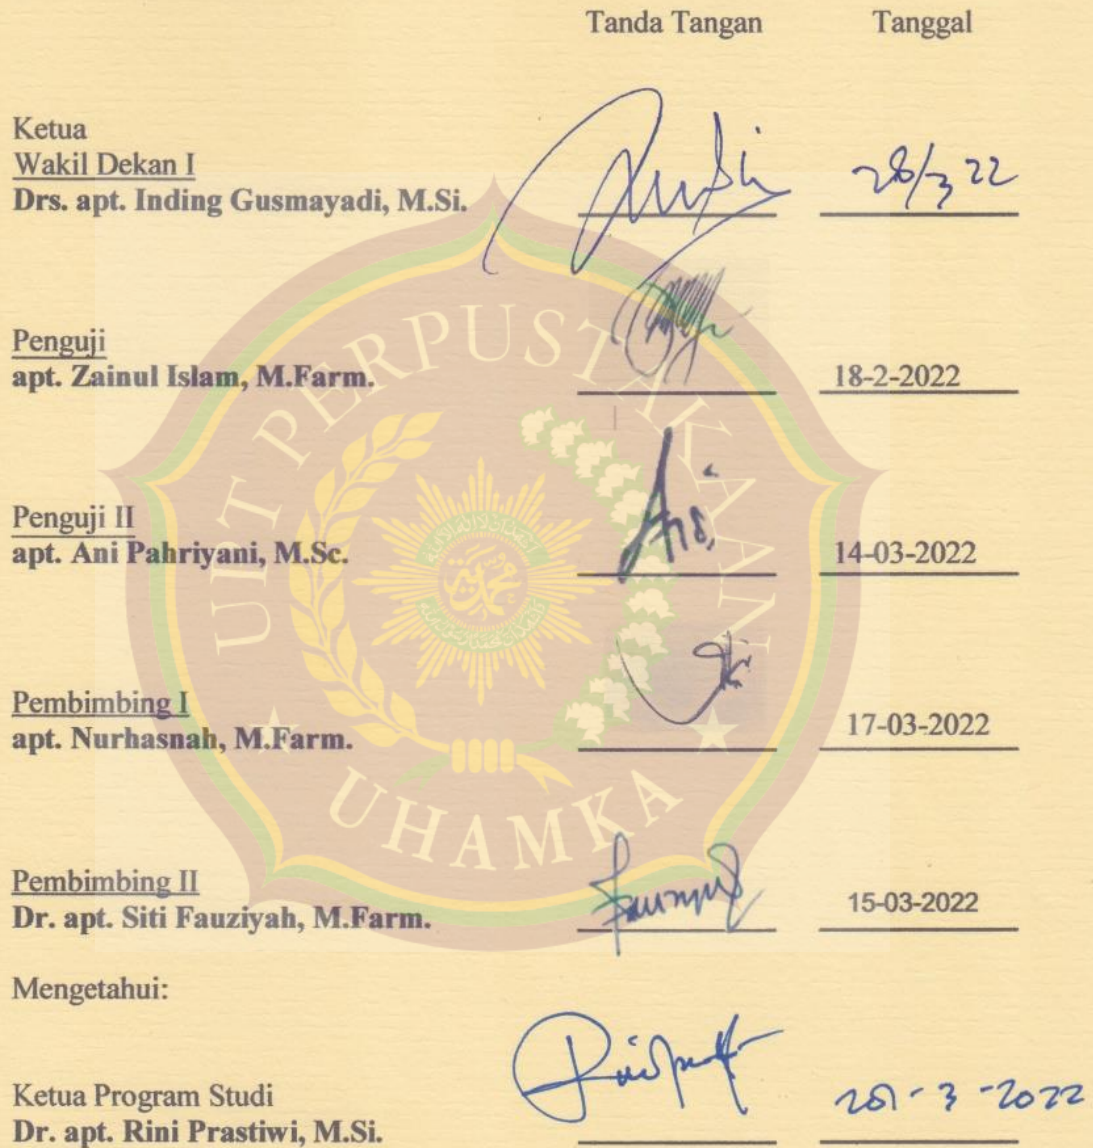 Tanda Tangan Tanggal
Ketua
Wakil Dekan I
Drs. apt. Inding Gusmayadi, M.Si. 28/3 22
Penguji
apt. Zainul Islam, M.Farm. 18-2-2022
Penguji II
apt. Ani Pahriyani, M.Sc. 14-03-2022
Pembimbing I
apt. Nurhasnah, M.Farm. 17-03-2022
Pembimbing II
Dr. apt. Siti Fauziyah, M.Farm. 15-03-2022
Mengetahui:
Ketua Program Studi
Dr. apt. Rini Prastiwi, M.Si.
UPT PERPUSTAKAAN
UHAMKA